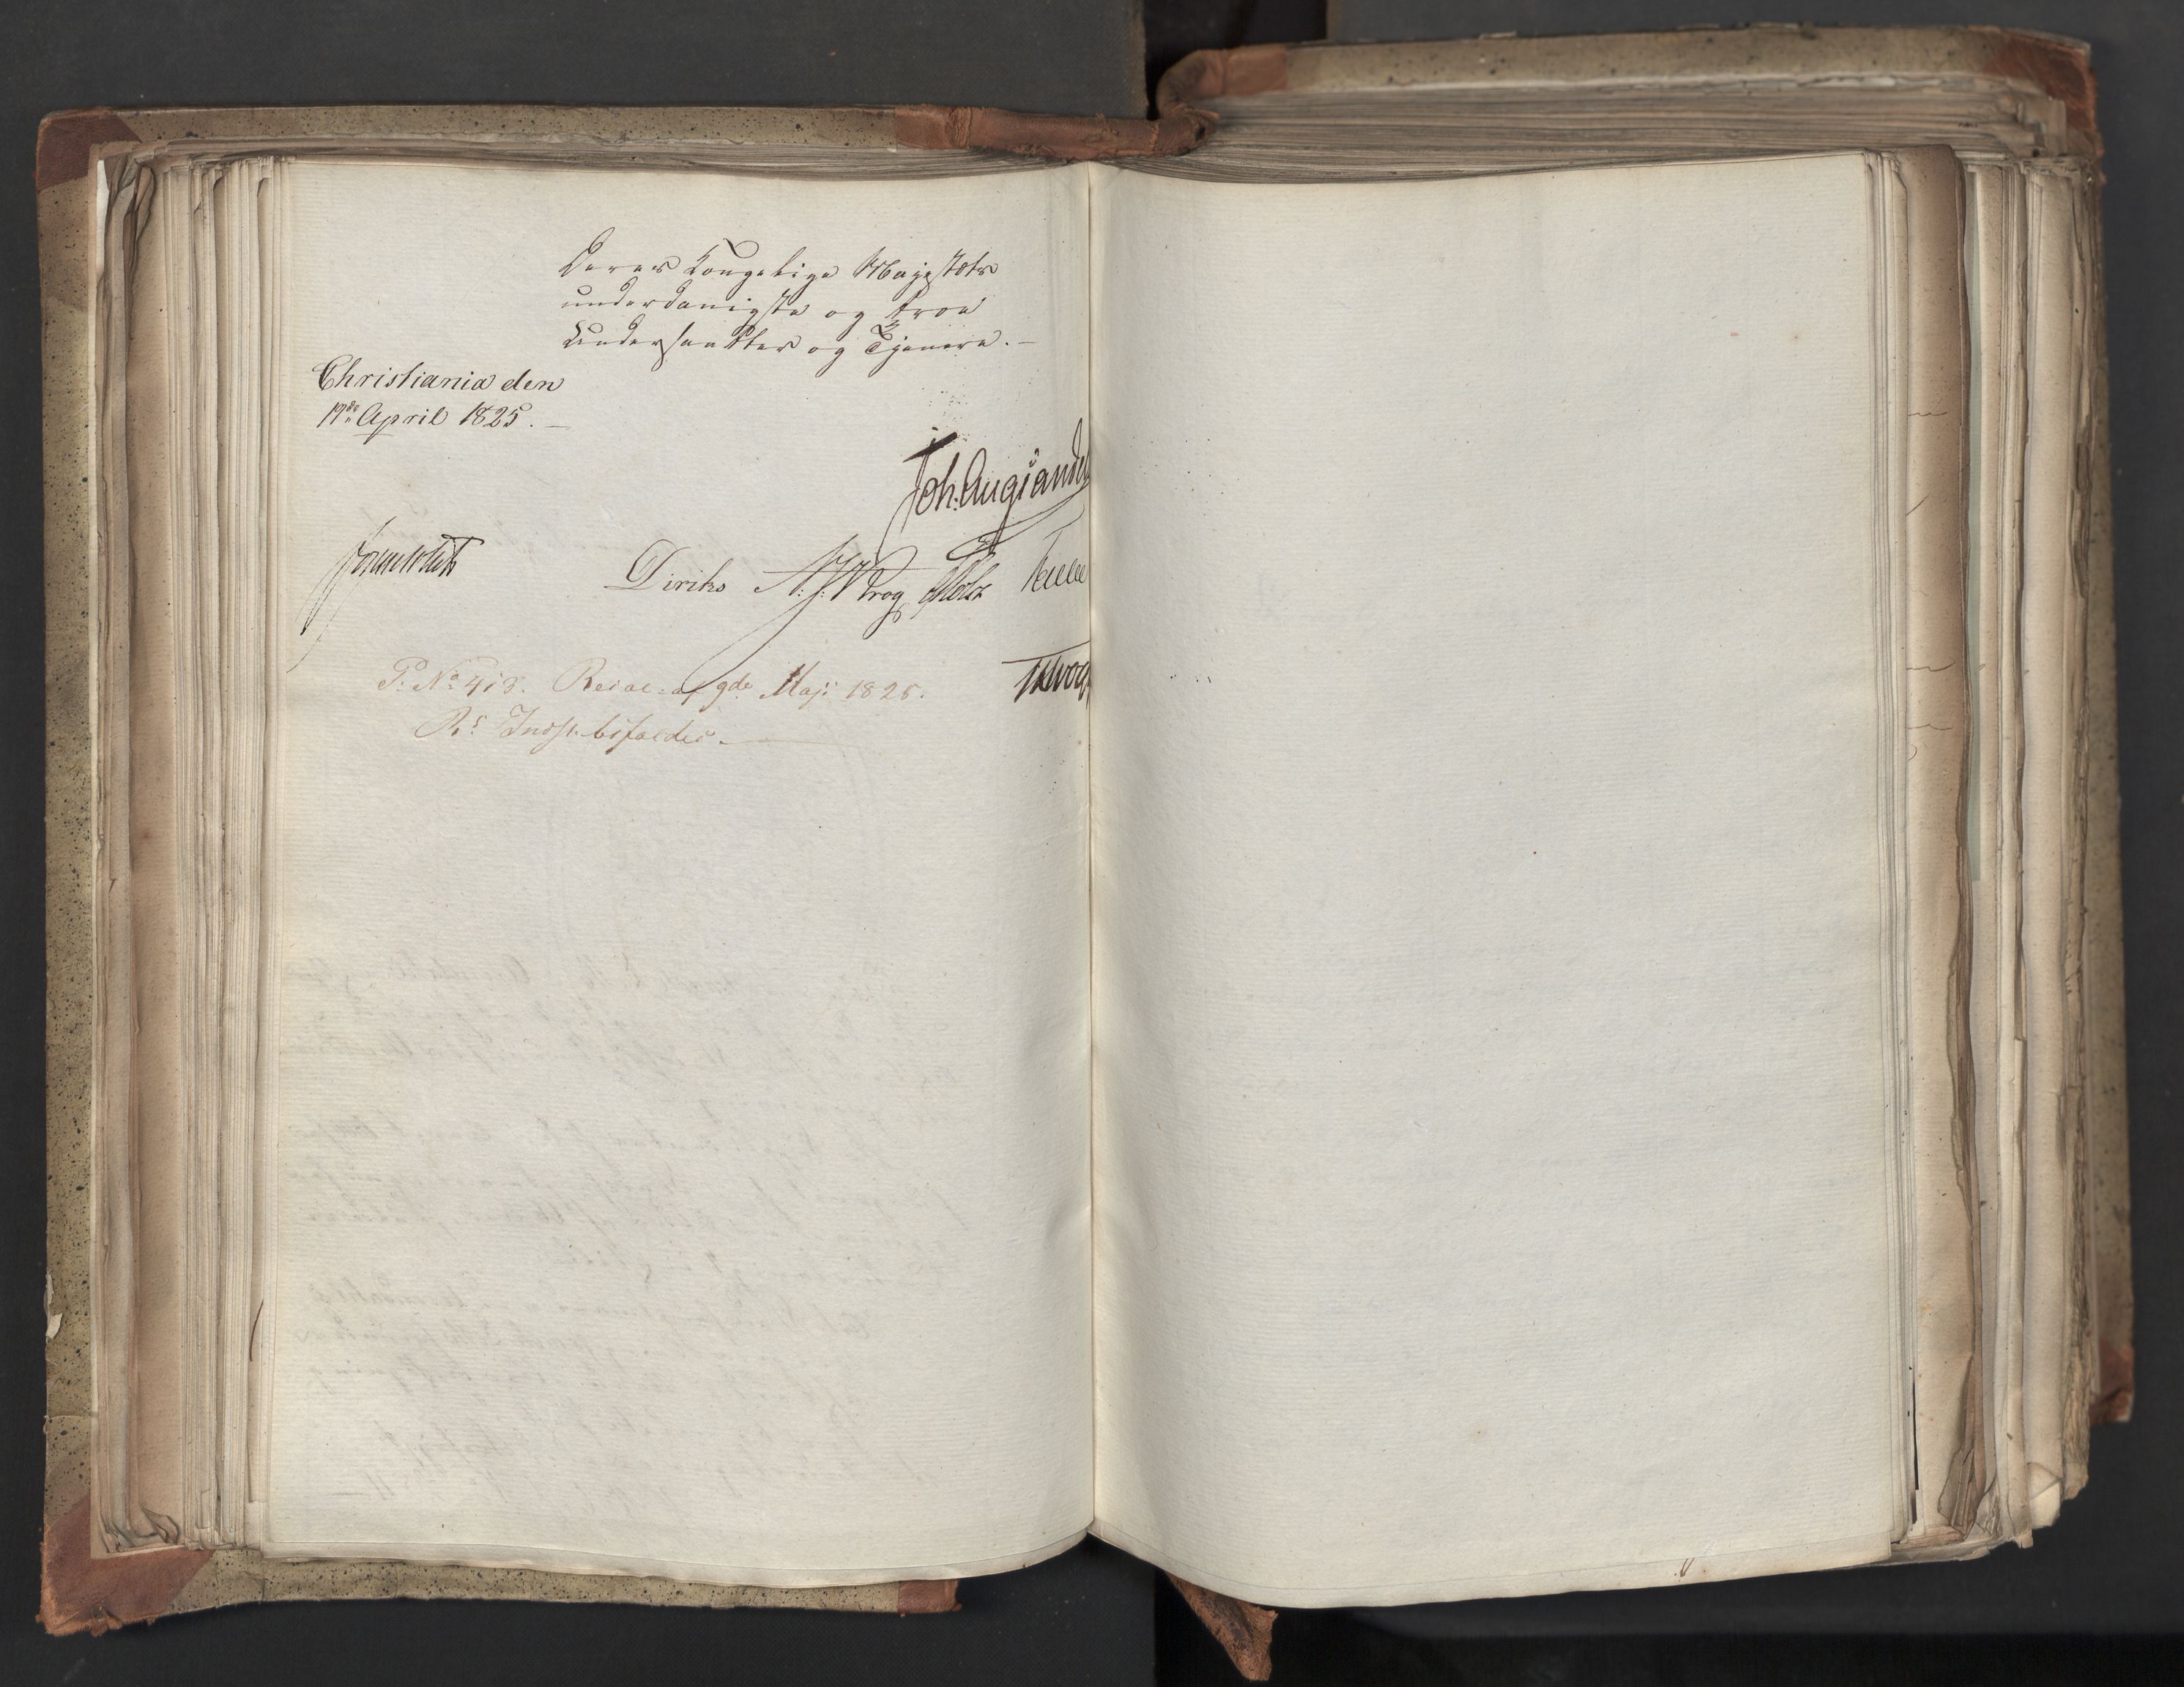 Deres Kongelige Majestæts
underdanigste og troe
Undersaatter og Tjenere.-
Christiania den
19de April 1825.-
Joh: Aug: Sandels
Sommerhielm Diriks A: J: Krog Holst
TKrog
P: No 418. Resol: af 9de Maji 1825.
Rs Indst. bifaldes.